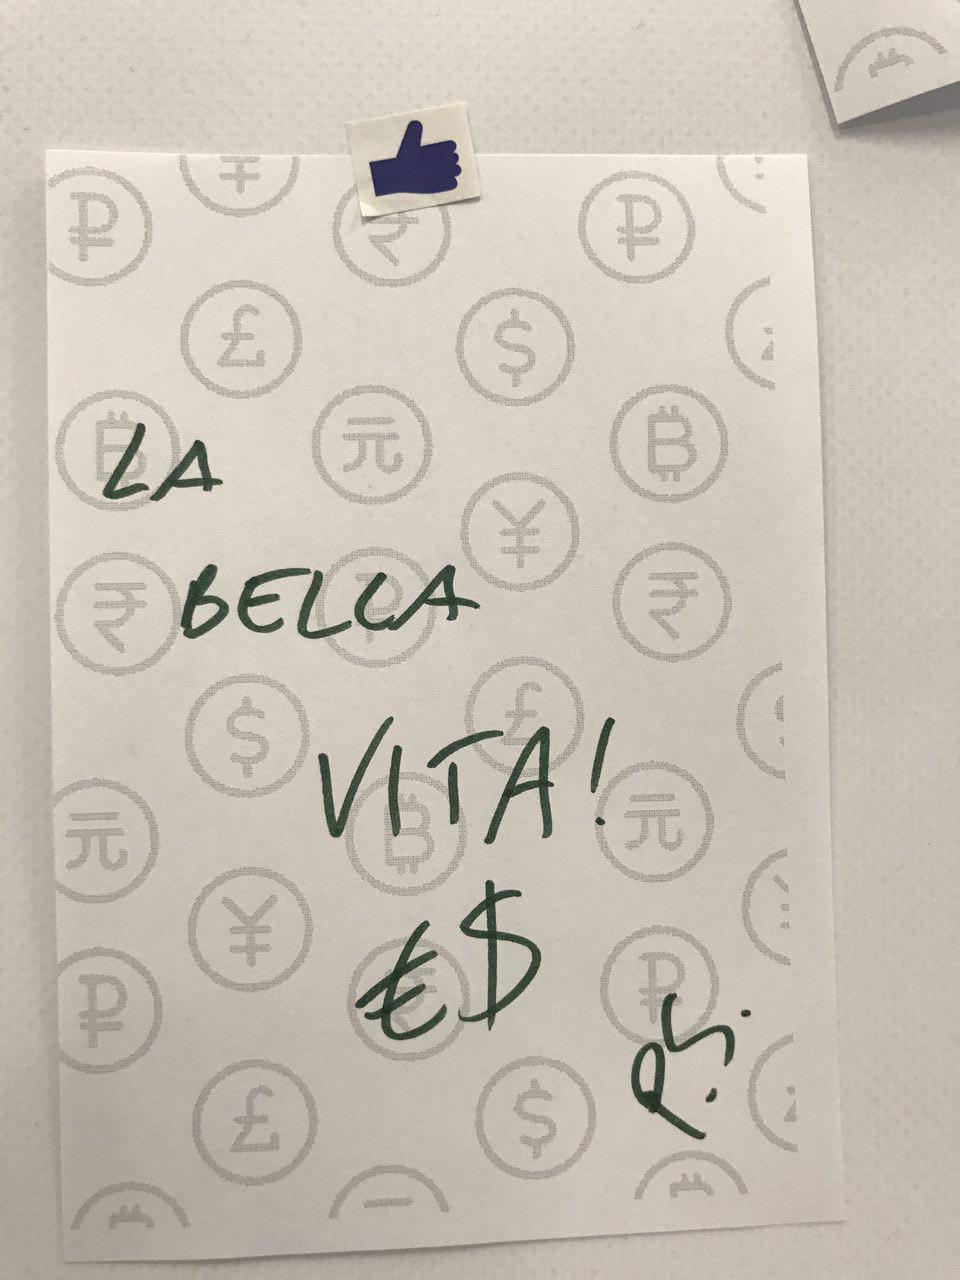 LA
BELLA
VITA!
€$